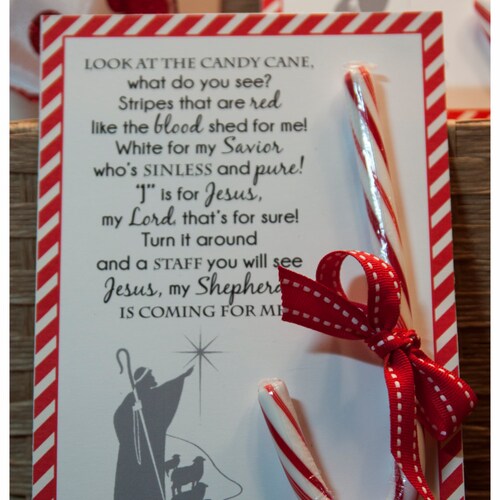 LOOK AT THE CANDY CANE,
what do you see?
Stripes that are red
like the blood shed for me!
White for my Savior
who's SINLESS and pure!
"J" is for Jesus,
my Lord, that's for sure!
Turn it around
and a STAFF you will see
Jesus, my Shepher
IS COMING FOR ME